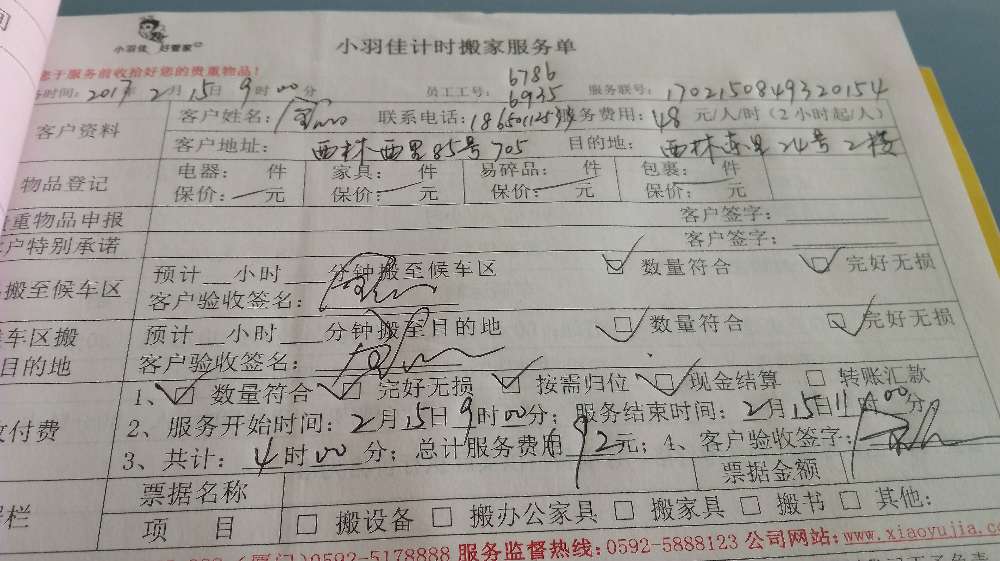 小羽佳 好管家
小羽佳计时搬家服务单
您于服务前收拾好您的贵重物品！
时间：2017年2月15日9时00分 员工工号：6786 6935 服务联号：1702150849320154
客户资料 客户姓名： 联系电话： 服务费用：48元/人/时（2小时起/人）
客户地址：西林西里85号705 目的地：西林东里24号2楼
物品登记 电器： 件 家具： 件 易碎品： 件 包裹： 件
保价： 元 保价： 元 保价： 元 保价： 元
重物品申报 客户签字：
户特别承诺 客户签字：
搬至候车区 预计__小时__分钟搬至候车区 数量符合 完好无损
客户验收签名：
车区搬 预计__小时__分钟搬至目的地 数量符合 完好无损
目的地 客户验收签名：
1、 数量符合 完好无损 按需归位 现金结算 转账汇款
付费 2、服务开始时间：2月15日9时00分；服务结束时间：2月15日11时00分
3、共计：4时00分；总计服务费用192元；4、客户验收签字：
栏 票据名称 票据金额
项 目 搬设备 搬办公家具 搬家具 搬书 其他：
(厦门)0592-5178888 服务监督热线：0592-5888123 公司网站：www.xiaoyujia.co